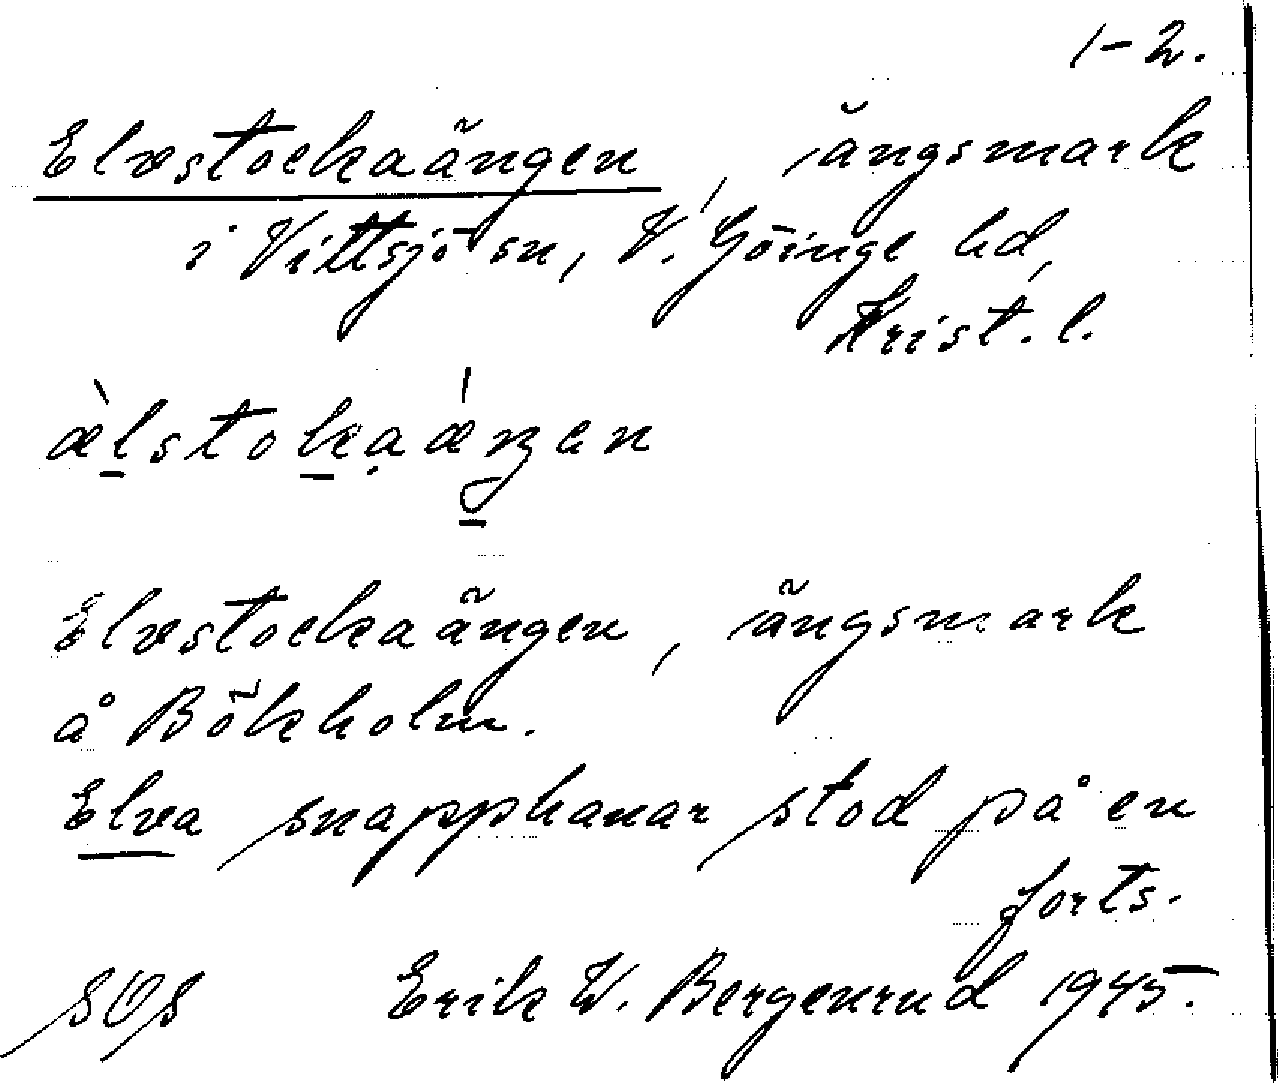 1-2.
Elvestockaängen, ängsmark
i Vittsjö sn, V. Göinge hd,
Krist. l.
Elvestockaängen, ängsmark
å Bökholm.
Elva snapphanar stod på en
forts.
SOS Erik W. Bergenrud 1945.